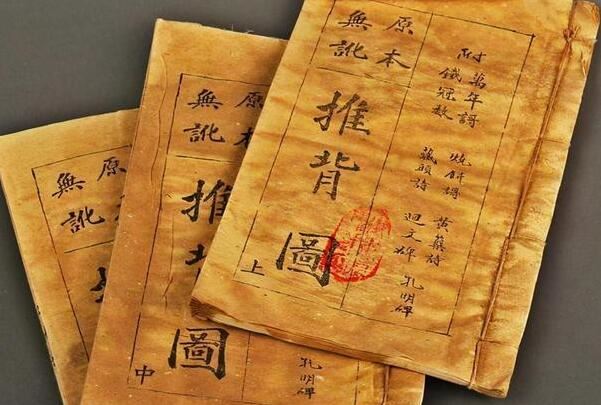 附萬年謌
鐵冠數
燒餅謌
藏頭詩
黃蘗詩
迴文碑
孔明碑
原本
無訛
推背圖
上
原本
無訛
推
圖
中
孔明碑
原本
無訛